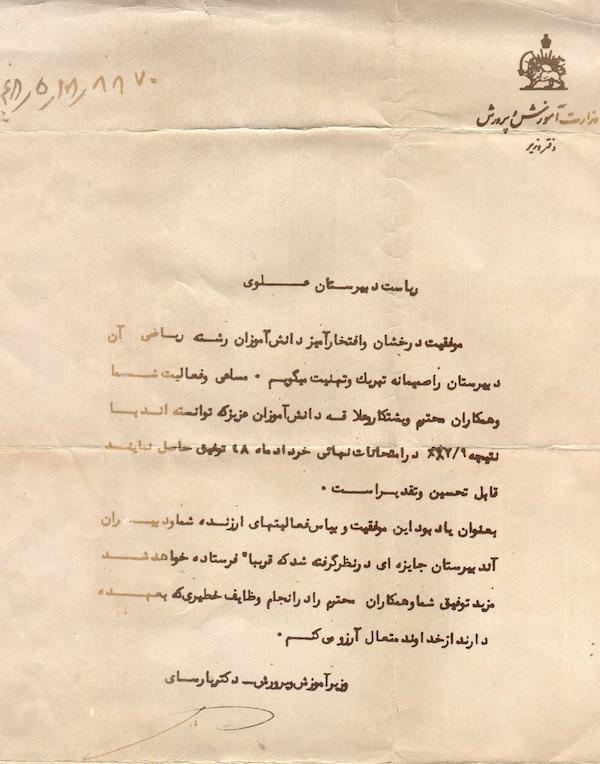 وزارت آموزش و پرورش
دفتر وزیر
ریاست دبیرستان علوی
موفقیت درخشان وافتخارآمیز دانش‌آموزان رشته ریاضی آن
دبیرستان راصمیمانه تبریک وتهنیت میگویم . مساعی وفعالیت شما
وهمکاران محترم وپشتکاروعلاقه دانش‌آموزان عزیزکه توانسته اندبا
نتیجه در امتحانات نهائی خردادماه ۴۸ توفیق حاصل نمایند
قابل تحسین وتقدیراست .
بعنوان یادبود این موفقیت و بپاس فعالیتهای ارزنده شماودبیران
آندبیرستان جایزه ای درنظرگرفته شدکه قریبا" فرستاده خواهدشد
مزید توفیق شماوهمکاران محترم رادرانجام وظایف خطیری‌که بعهده
دارند ازخداوندمتعال آرزو می‌کنم .
وزیرآموزش وپرورش_ دکترپارسای